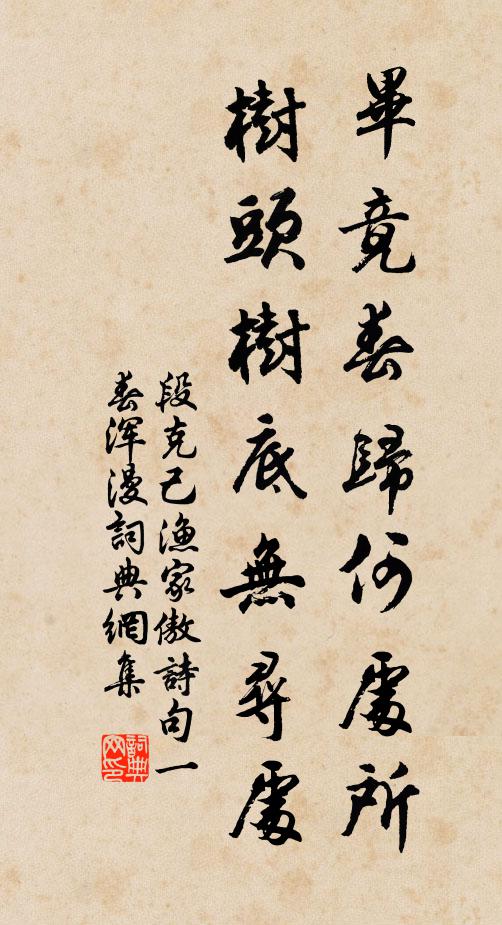 畢竟春歸何處所
樹頭樹底無尋處
段克己漁家傲詩句一
春渾漫詞典網集
詞典
网印